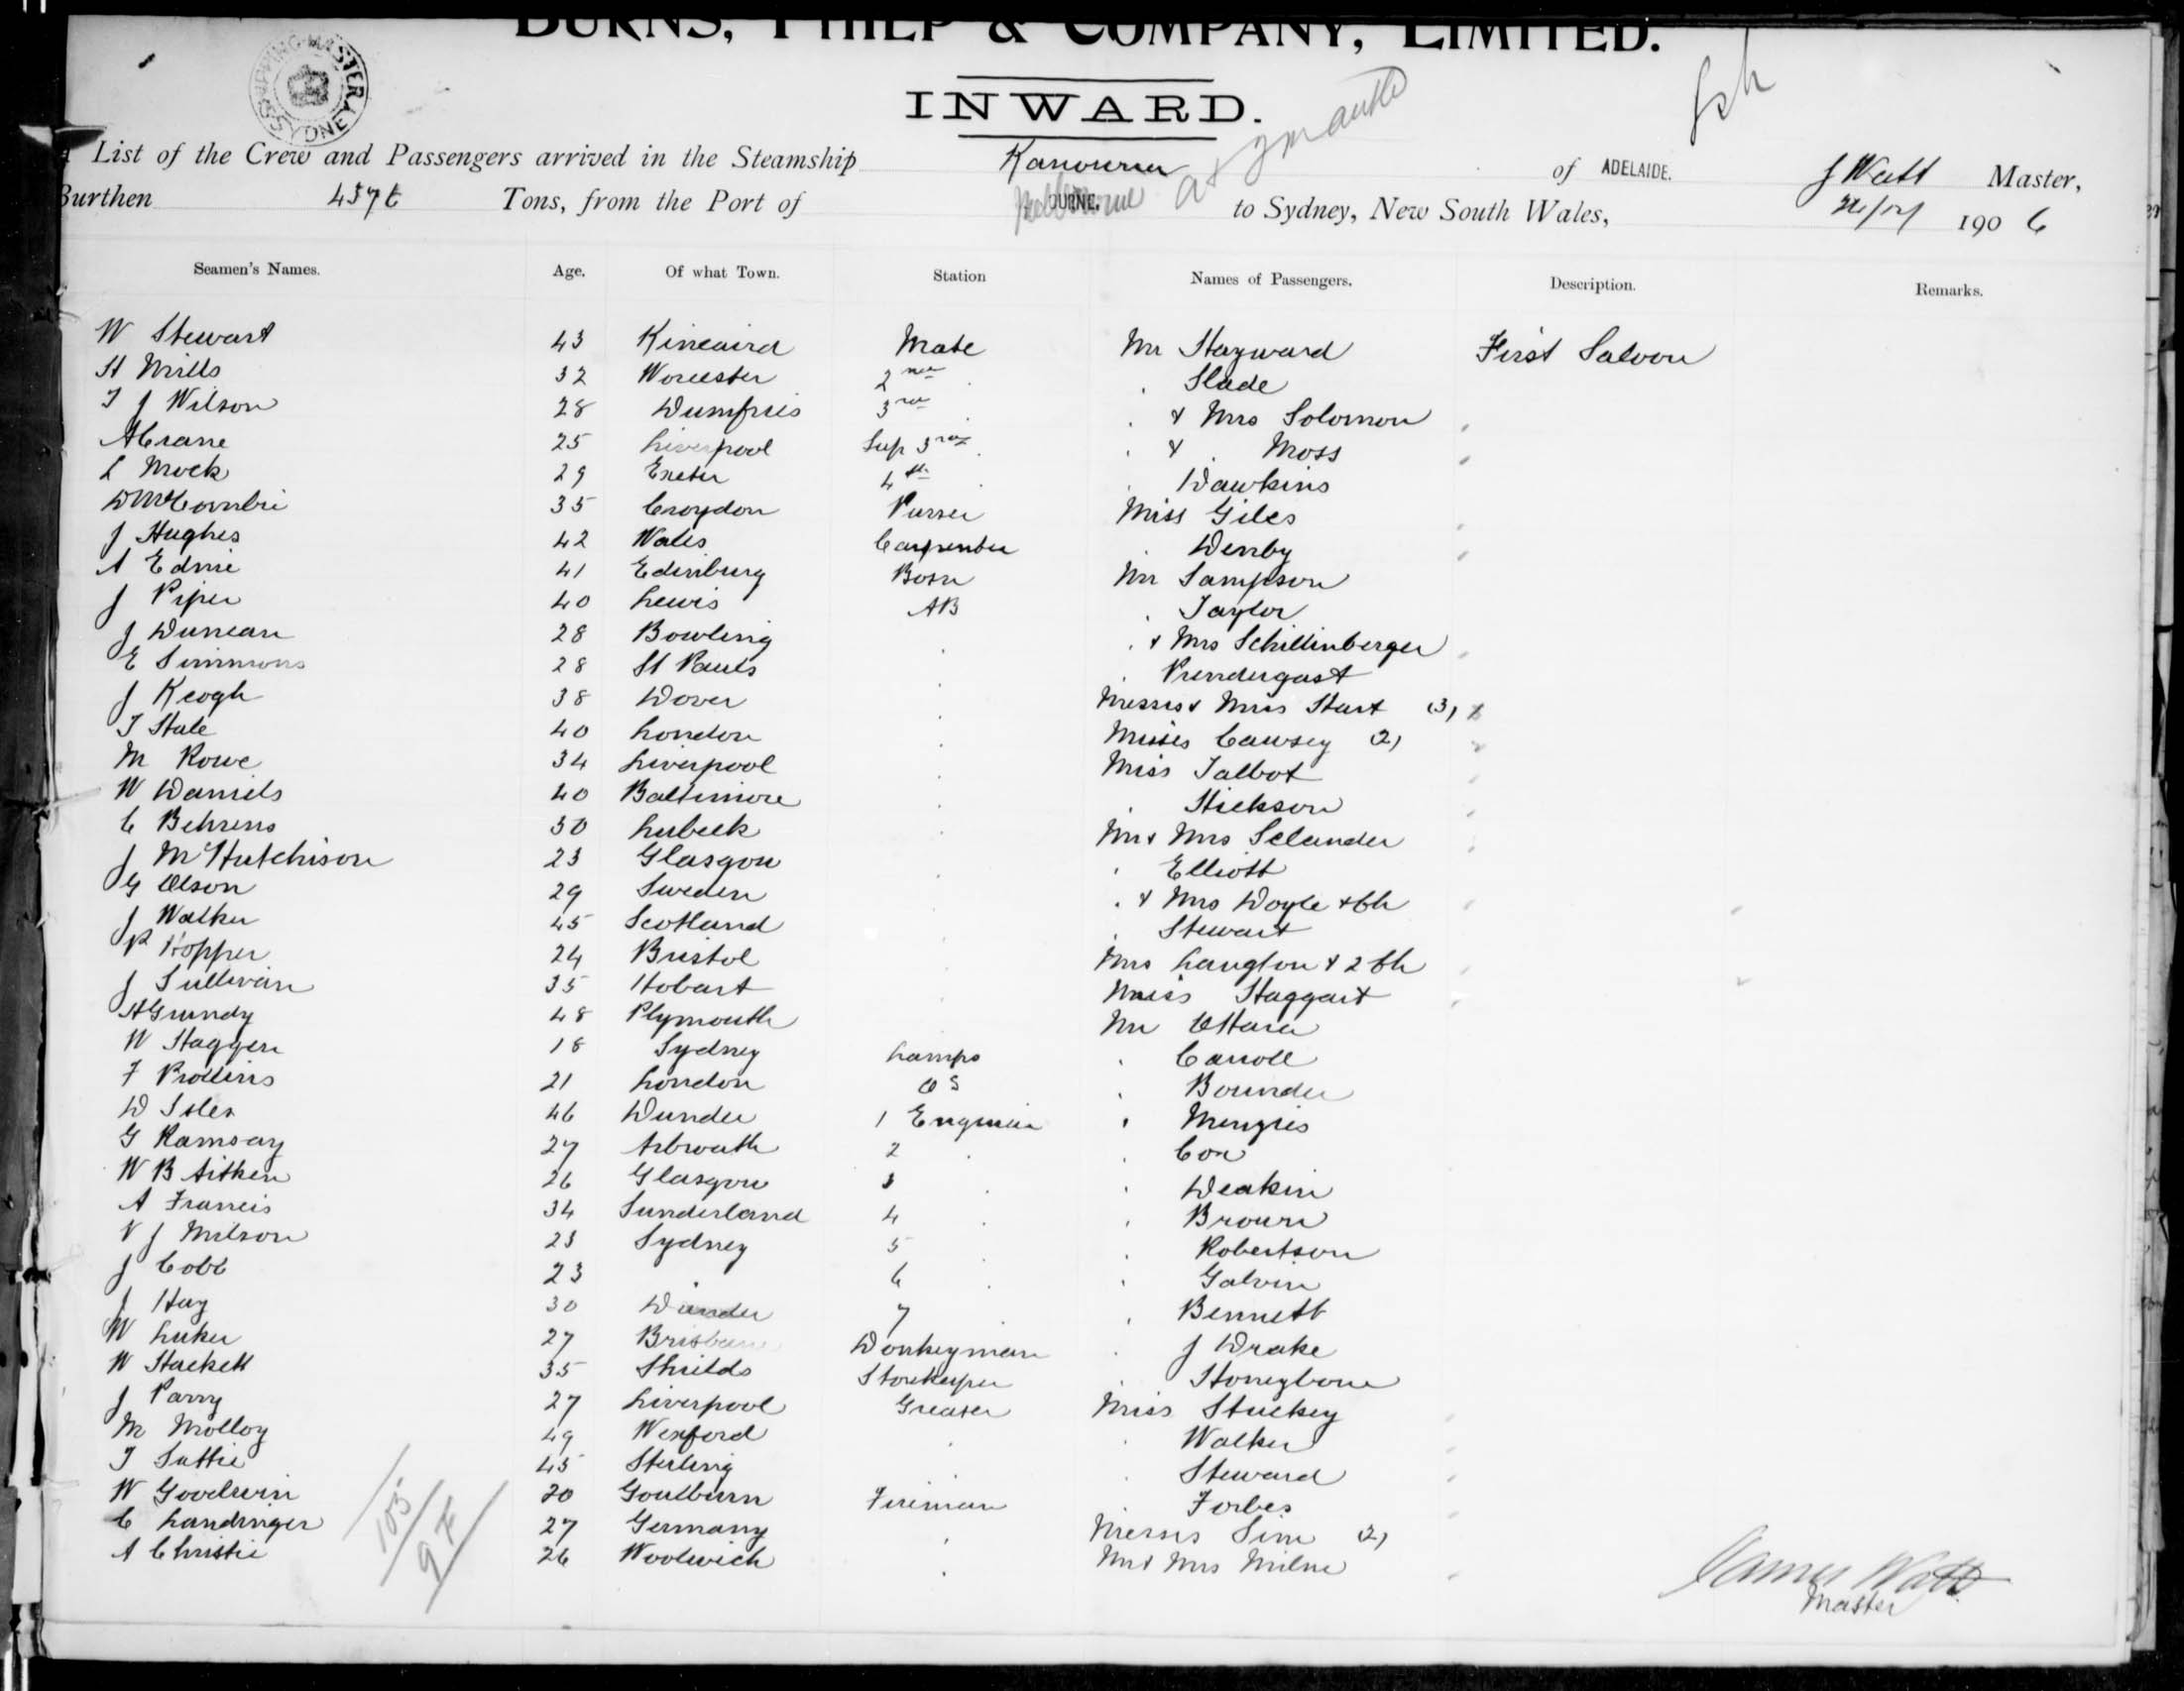 BURNS, PHILP & COMPANY, LIMITED.
INWARD.
SHIPPING MASTER SYDNEY
List of the Crew and Passengers arrived in the Steamship Kanowna of ADELAIDE. J Watt Master,
Burthen Tons, from the Port of Melbourne to Sydney, New South Wales, 1906
Seamen's Names. Age. Of what Town. Station Names of Passengers. Description. Remarks.
W Stewart 43 Kincaird Mate Mr Hayward First Saloon
H Mills 32 Worcester 2nd Slade
T J Wilson 28 Dumfries 3rd & Mrs Solomon
A Crane 25 Liverpool Sup 3rd & Moss
L Mock 29 Exeter 4th Dawkins
D McCombie 35 Croydon Purser Miss Giles
J Hughes 42 Wales Carpenter Denby
A Edmie 41 Edinburg Bosn Mr Sampson
J Piper 40 Lewis AB Taylor
J Duncan 28 Bowling & Mrs Schillinberger
E Simmons 28 St Pauls Prendergast
J Keogh 38 Dover Messrs & Miss Hart (3)
T Hale 40 London Misses Causey (2)
M Rowe 34 Liverpool Miss Talbot
W Daniels 40 Baltimore Hickson
C Behrens 30 Lubeck Mr & Mrs Selander
J McHutchison 23 Glasgow Elliott
G Olson 29 Sweden & Mrs Doyle & Ch
J Walker 45 Scotland Stewart
P Hopper 24 Bristol Mrs Langton & 2 Ch
J Sullivan 35 Hobart Miss Haggart
A Grundy 48 Plymouth Mr OHara
W Haggen 18 Sydney Lamps Carroll
F Prollins 21 London OS Bounder
D Isles 46 Dundee 1 Engineer Menzies
G Ramsay 27 Arbroath 2 Cox
W B Aitken 26 Glasgow 3 Deakin
A Francis 34 Sunderland 4 Brown
V J Milson 23 Sydney 5 Robertson
J Cobb 23 6 Galvin
J Hay 30 Dundee 7 Bennett
W Luker 27 Brisbane Donkeyman J Drake
W Hackett 35 Shields Storekeeper Honeybone
J Parry 27 Liverpool Greaser Miss Stuckey
M Molloy 49 Wexford Walker
T Suttie 45 Sterling Steward
W Goodwin 20 Goulburn Fireman Forbes
C Landinger 27 Germany Messrs Sim (2)
A Christie 26 Woolwich Mr & Mrs Milne
103
97
James Watt
Master